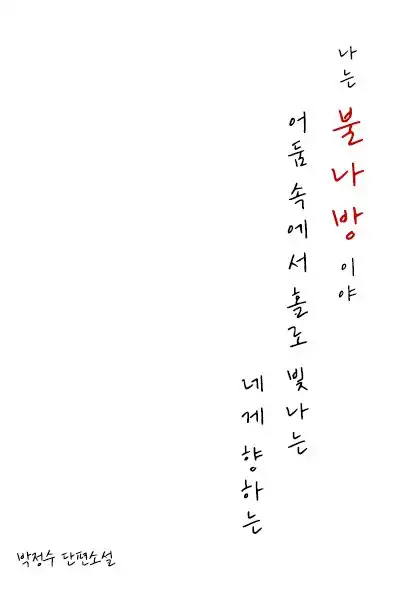 나는 불나방이야
어둠 속에서 홀로 빛나는
네게 향하는
박정수 단편소설